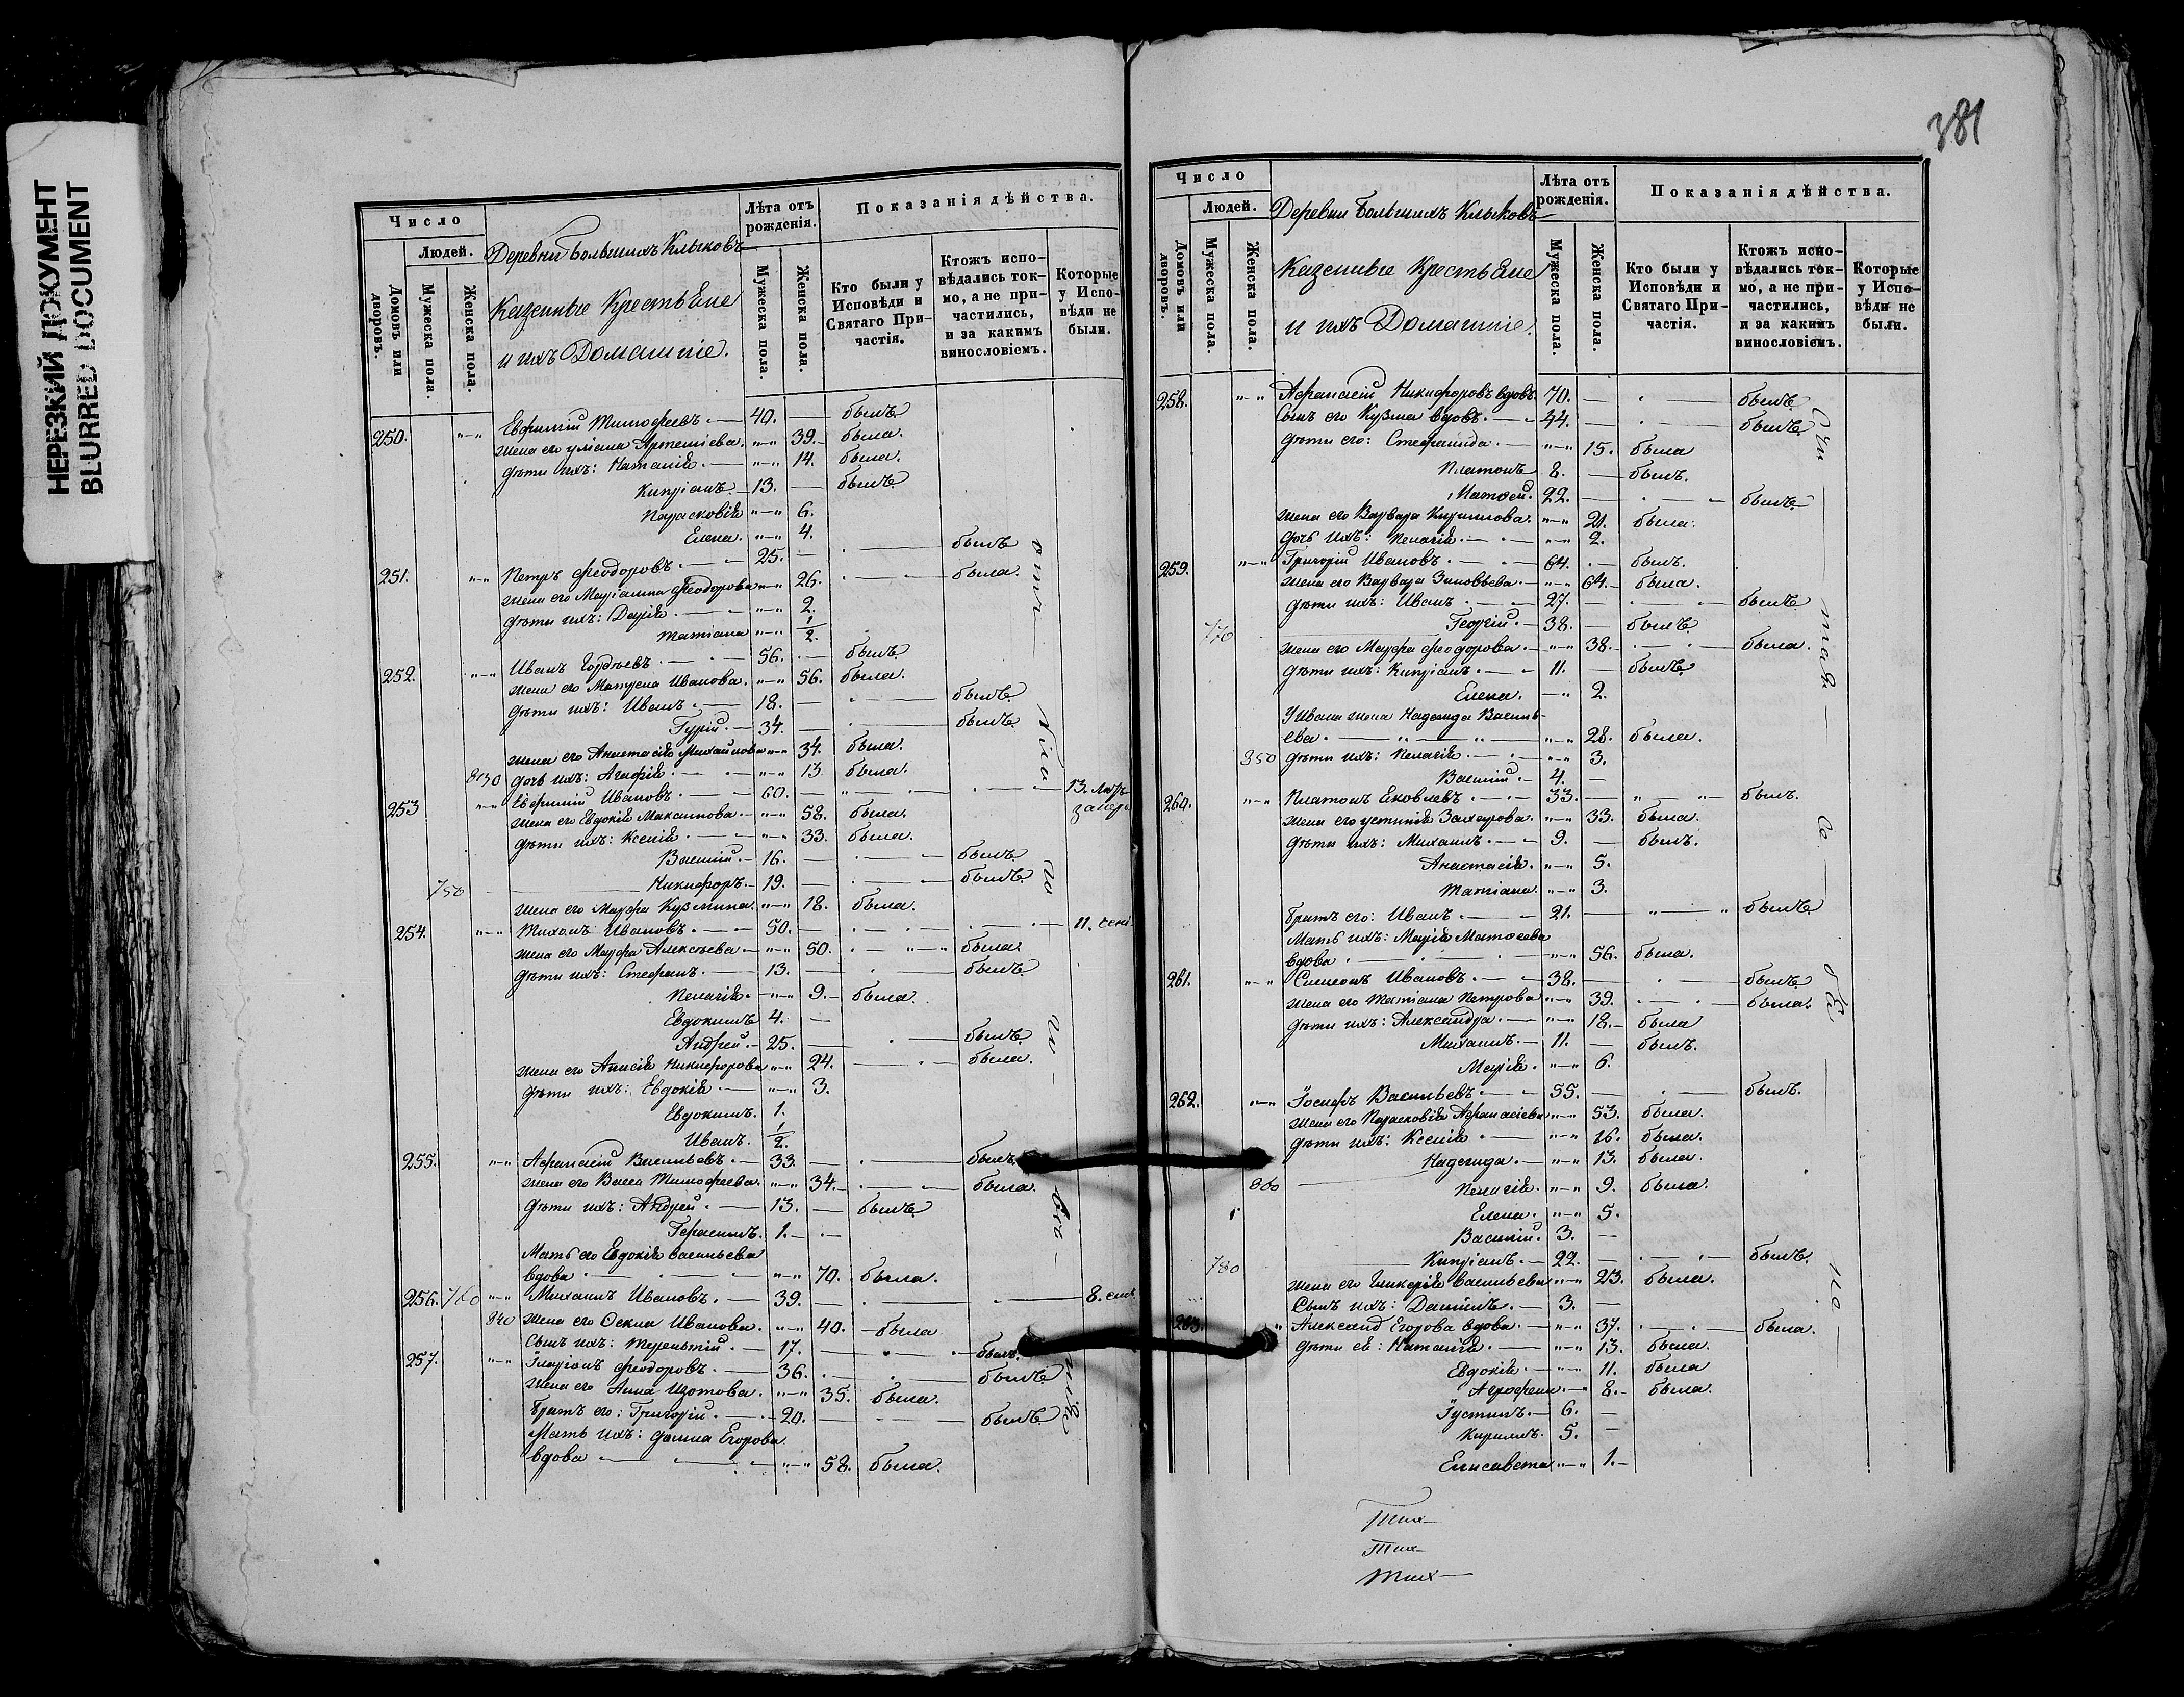 НЕРЕЗКИЙ ДОКУМЕНТ
BLURRED DOCUMENT
Число
Людей.
Домовъ или дворовъ.
Мужеска пола.
Женска пола.
Деревни Большихъ Клыковъ
Казенные Крестьяне
и ихъ Домашніе.
Лѣта отъ рожденія.
Мужеска пола.
Женска пола.
Показанія дѣйства.
Кто были у Исповѣди и Святаго Причастія.
Ктожъ исповѣдались токмо, а не причастились, и за какимъ винословіемъ.
Которые у Исповѣди не были.
250. „—„ Евфимій Тимофеевъ. — 40. — былъ
жена его Ульяна Артеміева. „—„ 39. была.
дѣти ихъ: Наталія. — „—„ 14. была.
Кипріанъ. — 13. — былъ
Парасковія „—„ 6.
Елена. „—„ 4.
251. „—„ Петръ Феодоровъ. — 25. — былъ
жена его Маріамна Феодорова „—„ 26. — была.
дѣти ихъ: Дарія. — „—„ 2.
Татіана „—„ 1/2.
252. „—„ Иванъ Гордѣевъ. — 56. — былъ
жена его Матрена Иванова. „—„ 56. была.
дѣти ихъ: Иванъ. — 18. — былъ
Гурій. — 34. — былъ
жена его Анастасія Михайлова „—„ 34. была.
дочь ихъ: Агафія. — „—„ 13. была.
253 „—„ Евфимій Ивановъ. — 60. — 13. лѣтъ
жена его Евдокія Максимова. — „—„ 58. была.
дѣти ихъ: Ксенія. — „—„ 33. была.
Василій. — 16. — былъ
750 Никифоръ. — 19. — былъ
жена его Марфа Кузмина. „—„ 18. была.
254. „—„ Тихонъ Ивановъ. — 50. — 11.
жена его Марфа Алексѣева — „—„ 50. — была.
дѣти ихъ: Стефанъ. — 13. — былъ
Пелагія. — „—„ 9. — была.
Евдокимъ 4. —
Андрей. — 25. — былъ
жена его Анисія Никифорова „—„ 24. — была.
дѣти ихъ: Евдокія. — „—„ 3.
Евдокимъ. 1.
Иванъ. 1/2.
255. „—„ Афанасій Васильевъ. — 33. — былъ
жена его Васса Тимофеева. „—„ 34. — была.
дѣти ихъ: Андрей. — 13. — былъ
Герасимъ. 1. —
Мать его Евдокія Васильева
вдова — „—„ 70. была.
256. 760 „—„ Михаилъ Ивановъ. — 39. — 8.
840 жена его Фекла Иванова. „—„ 40. — была
Сынъ ихъ: Терентій. — 17. — былъ.
257. „—„ Иларіонъ Феодоровъ. — 36. — былъ
жена его Анна Изотова. „—„ 35. была.
Братъ его: Григорій. — 20. — былъ
Мать ихъ: Домна Егорова
вдова — „—„ 58. была.
381
Число
Людей.
Домовъ или дворовъ.
Мужеска пола.
Женска пола.
Деревни Большихъ Клыковъ
Казенные Крестьяне
и ихъ Домашніе.
Лѣта отъ рожденія.
Мужеска пола.
Женска пола.
Показанія дѣйства.
Кто были у Исповѣди и Святаго Причастія.
Ктожъ исповѣдались токмо, а не причастились, и за какимъ винословіемъ.
Которые у Исповѣди не были.
258. „—„ Афанасій Никифоровъ вдовъ. 70. — былъ
Сынъ его Кузма вдовъ. — 44. — былъ
дѣти его: Стефанида. — „—„ 15. была
Платонъ 8. — былъ.
Матфей. 22. — былъ
жена его Варвара Кирилова. „—„ 21. была.
дочь ихъ: Пелагія. — „—„ 2.
259. „—„ Григорій Ивановъ. — 64. — былъ.
жена его Варвара Зиновьева. — „—„ 64. — была.
дѣти ихъ: Иванъ. — 27. — былъ
770 Георгій. — 38. — былъ
жена его Марфа Феодорова. — „—„ 38. — была.
дѣти ихъ: Кипріанъ. — 11. — былъ
Елена. — „ 2.
У Ивана жена Надежда Василь-
ева. — „—„ 28. была.
850 дѣти ихъ: Пелагія. — „—„ 3.
Василій. — 4. —
260. „—„ Платонъ Яковлевъ. — 33. — былъ.
жена его Устинія Захарова. „—„ 33. была.
дѣти ихъ: Михаилъ. — 9. — былъ.
Анастасія. „—„ 5.
Татіана. „—„ 3.
Братъ его: Иванъ. — 21. — былъ
Мать ихъ: Марія Матфеева
вдова — „—„ 56. была.
261. „—„ Симеонъ Ивановъ. — 38. — былъ
жена его Татіана Петрова „—„ 39. — была.
дѣти ихъ: Александра. — „—„ 18. — была
Михаилъ. — 11. — былъ.
Марія. „—„ 6.
262. „—„ Іосифъ Васильевъ. — 55. — былъ.
жена его Парасковія Афанасіева „—„ 53. была.
дѣти ихъ: Ксенія — „—„ 16. была.
Надежда. — „—„ 13. была.
860 Пелагія. „—„ 9. была.
Елена. „—„ 5.
Василій. 3. —
780 Кипріанъ. — 22. — былъ
жена его Гликерія Васильева „—„ 23. была.
Сынъ ихъ: Даніилъ. — 3. —
263. „ Александ Егорова вдова. — „—„ 37. — была.
дѣти ея: Наталія. — „—„ 13. была.
Евдокія. — „—„ 11. была
Агрофена. — „ 8. — была.
Іустинъ. — 6. —
Кириллъ. 5. —
Елисавета „—„ 1. —
Тих—
Тих—
Тих—